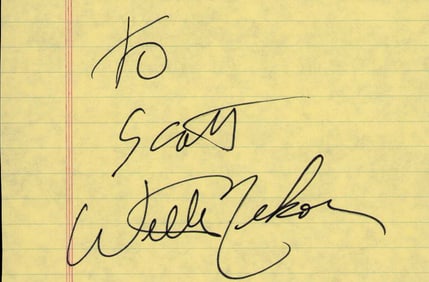 To
Scott
Willie Nelson